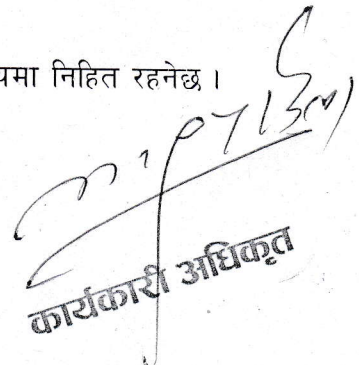 यमा निहित रहनेछ ।
कार्यकारी अधिकृत